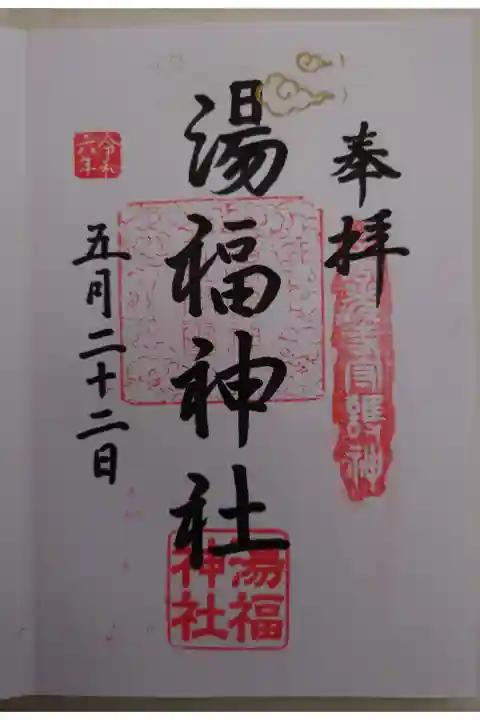 奉拝
善光寺守護神
湯福神社
湯福
神社
令和
六年
五月二十二日